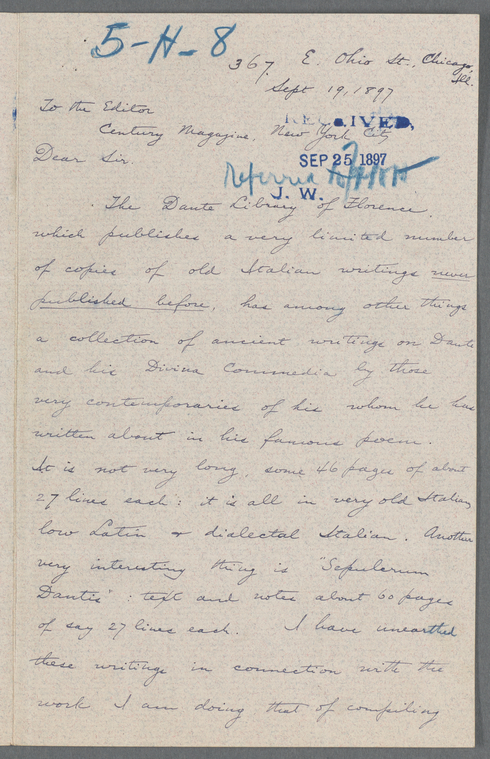 5-H-8
367 E. Ohio St., Chicago,
Ill.
Sept 19, 1897
To the Editor
Century Magazine, New York City
RECEIVED,
Dear Sir.
SEP 25 1897
Referred
J. W.
The Dante Library of Florence,
which publishes a very limited number
of copies of old Italian writings never
published before, has among other things
a collection of ancient writings on Dante
and his Divina Commedia by those
very contemporaries of his whom he has
written about in his famous poem.
It is not very long, some 46 pages of about
27 lines each: it is all in very old Italian,
low Latin & dialectal Italian. Another
very interesting thing is "Sepulcrum
Dantis": text and notes about 60 pages
of say 27 lines each. I have unearthed
these writings in connection with the
work I am doing that of compiling